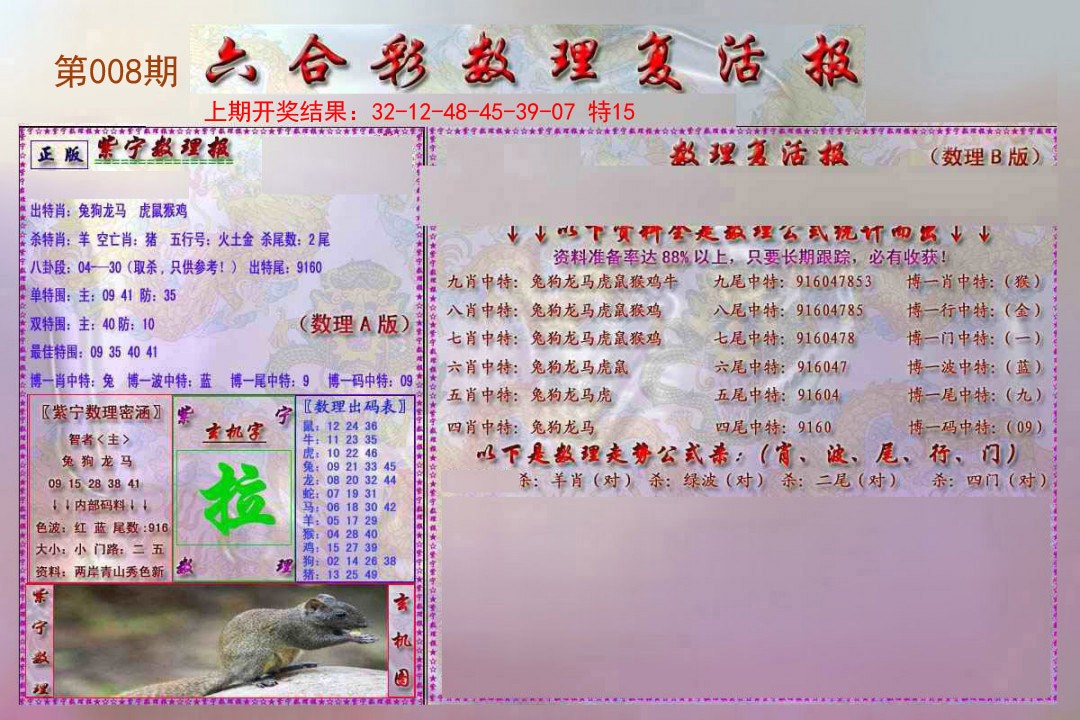 第008期
六合彩数理复活报
上期开奖结果：32-12-48-45-39-07 特15
正版 紫宁数理报
出特肖：兔狗龙马 虎鼠猴鸡
杀特肖：羊 空亡肖：猪 五行号：火土金 杀尾数：2尾
八卦段：04—30（取杀，只供参考！） 出特尾：9160
单特围：主：09 41 防：35
双特围：主：40防：10
（数理A版）
最佳特围：09 35 40 41
博一肖中特：兔 博一波中特：蓝 博一尾中特：9 博一码中特：09
〖紫宁数理密涵〗
智者＜主＞
兔 狗 龙 马
09 15 28 38 41
↓↓内部码料↓↓
色波：红 蓝 尾数：916
大小：小 门路：二 五
资料：两岸青山秀色新
紫 宁
玄机字
拉
数 理
〖数理出码表〗
鼠：12 24 36
牛：11 23 35
虎：10 22 46
兔：09 21 33 45
龙：08 20 32 44
蛇：07 19 31
马：06 18 30 42
羊：05 17 29
猴：04 28 40
鸡：15 27 39
狗：02 14 26 38
猪：13 25 49
紫宁数理
玄机图
数理复活报 （数理B版）
↓↓以下资料全是数理公式统计而出↓↓
资料准备率达88%以上，只要长期跟踪，必有收获！
九肖中特：兔狗龙马虎鼠猴鸡牛 九尾中特：916047853 博一肖中特：（猴）
八肖中特：兔狗龙马虎鼠猴鸡 八尾中特：91604785 博一行中特：（金）
七肖中特：兔狗龙马虎鼠猴鸡 七尾中特：9160478 博一门中特：（一）
六肖中特：兔狗龙马虎鼠 六尾中特：916047 博一波中特：（蓝）
五肖中特：兔狗龙马虎 五尾中特：91604 博一尾中特：（九）
四肖中特：兔狗龙马 四尾中特：9160 博一码中特：（09）
以下是数理走势公式杀：（肖、波、尾、行、门）
杀：羊肖（对） 杀：绿波（对） 杀：二尾（对） 杀：四门（对）